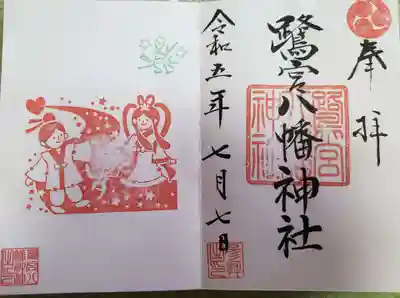 奉拝
鷺宮八幡神社
令和五年七月七日